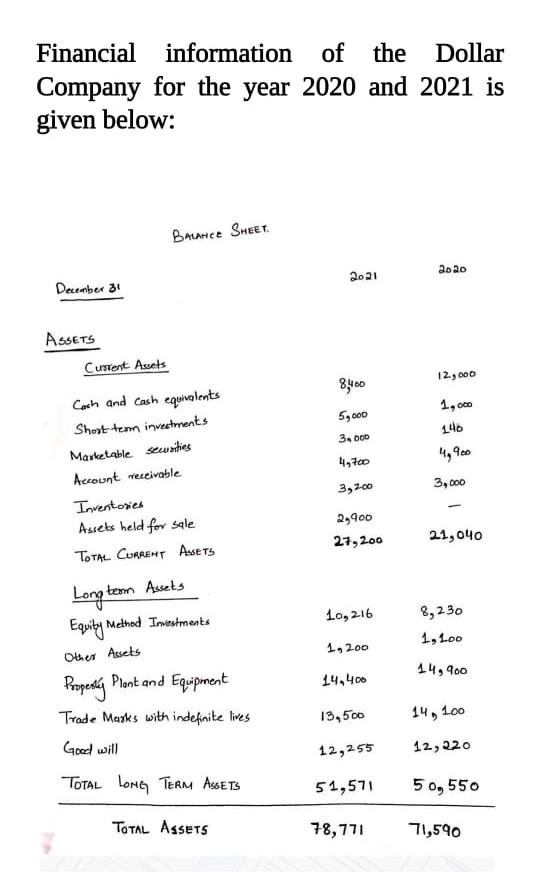 Financial information of the Dollar
Company for the year 2020 and 2021 is
given below:
BALANCE SHEET.
December 31 2021 2020
ASSETS
Current Assets
Cash and cash equivalents 8,400 12,000
Short-term investments 5,000 1,000
Marketable securities 3,000 140
Account receivable 4,700 4,900
Inventories 3,200 3,000
Assets held for sale 2,900 —
TOTAL CURRENT ASSETS 27,200 21,040
Long term Assets
Equity Method Investments 10,216 8,230
Other Assets 1,200 1,100
Property Plant and Equipment 14,400 14,900
Trade Marks with indefinite lives 13,500 14,100
Good will 12,255 12,220
TOTAL LONG TERM ASSETS 51,571 50,550
TOTAL ASSETS 78,771 71,590